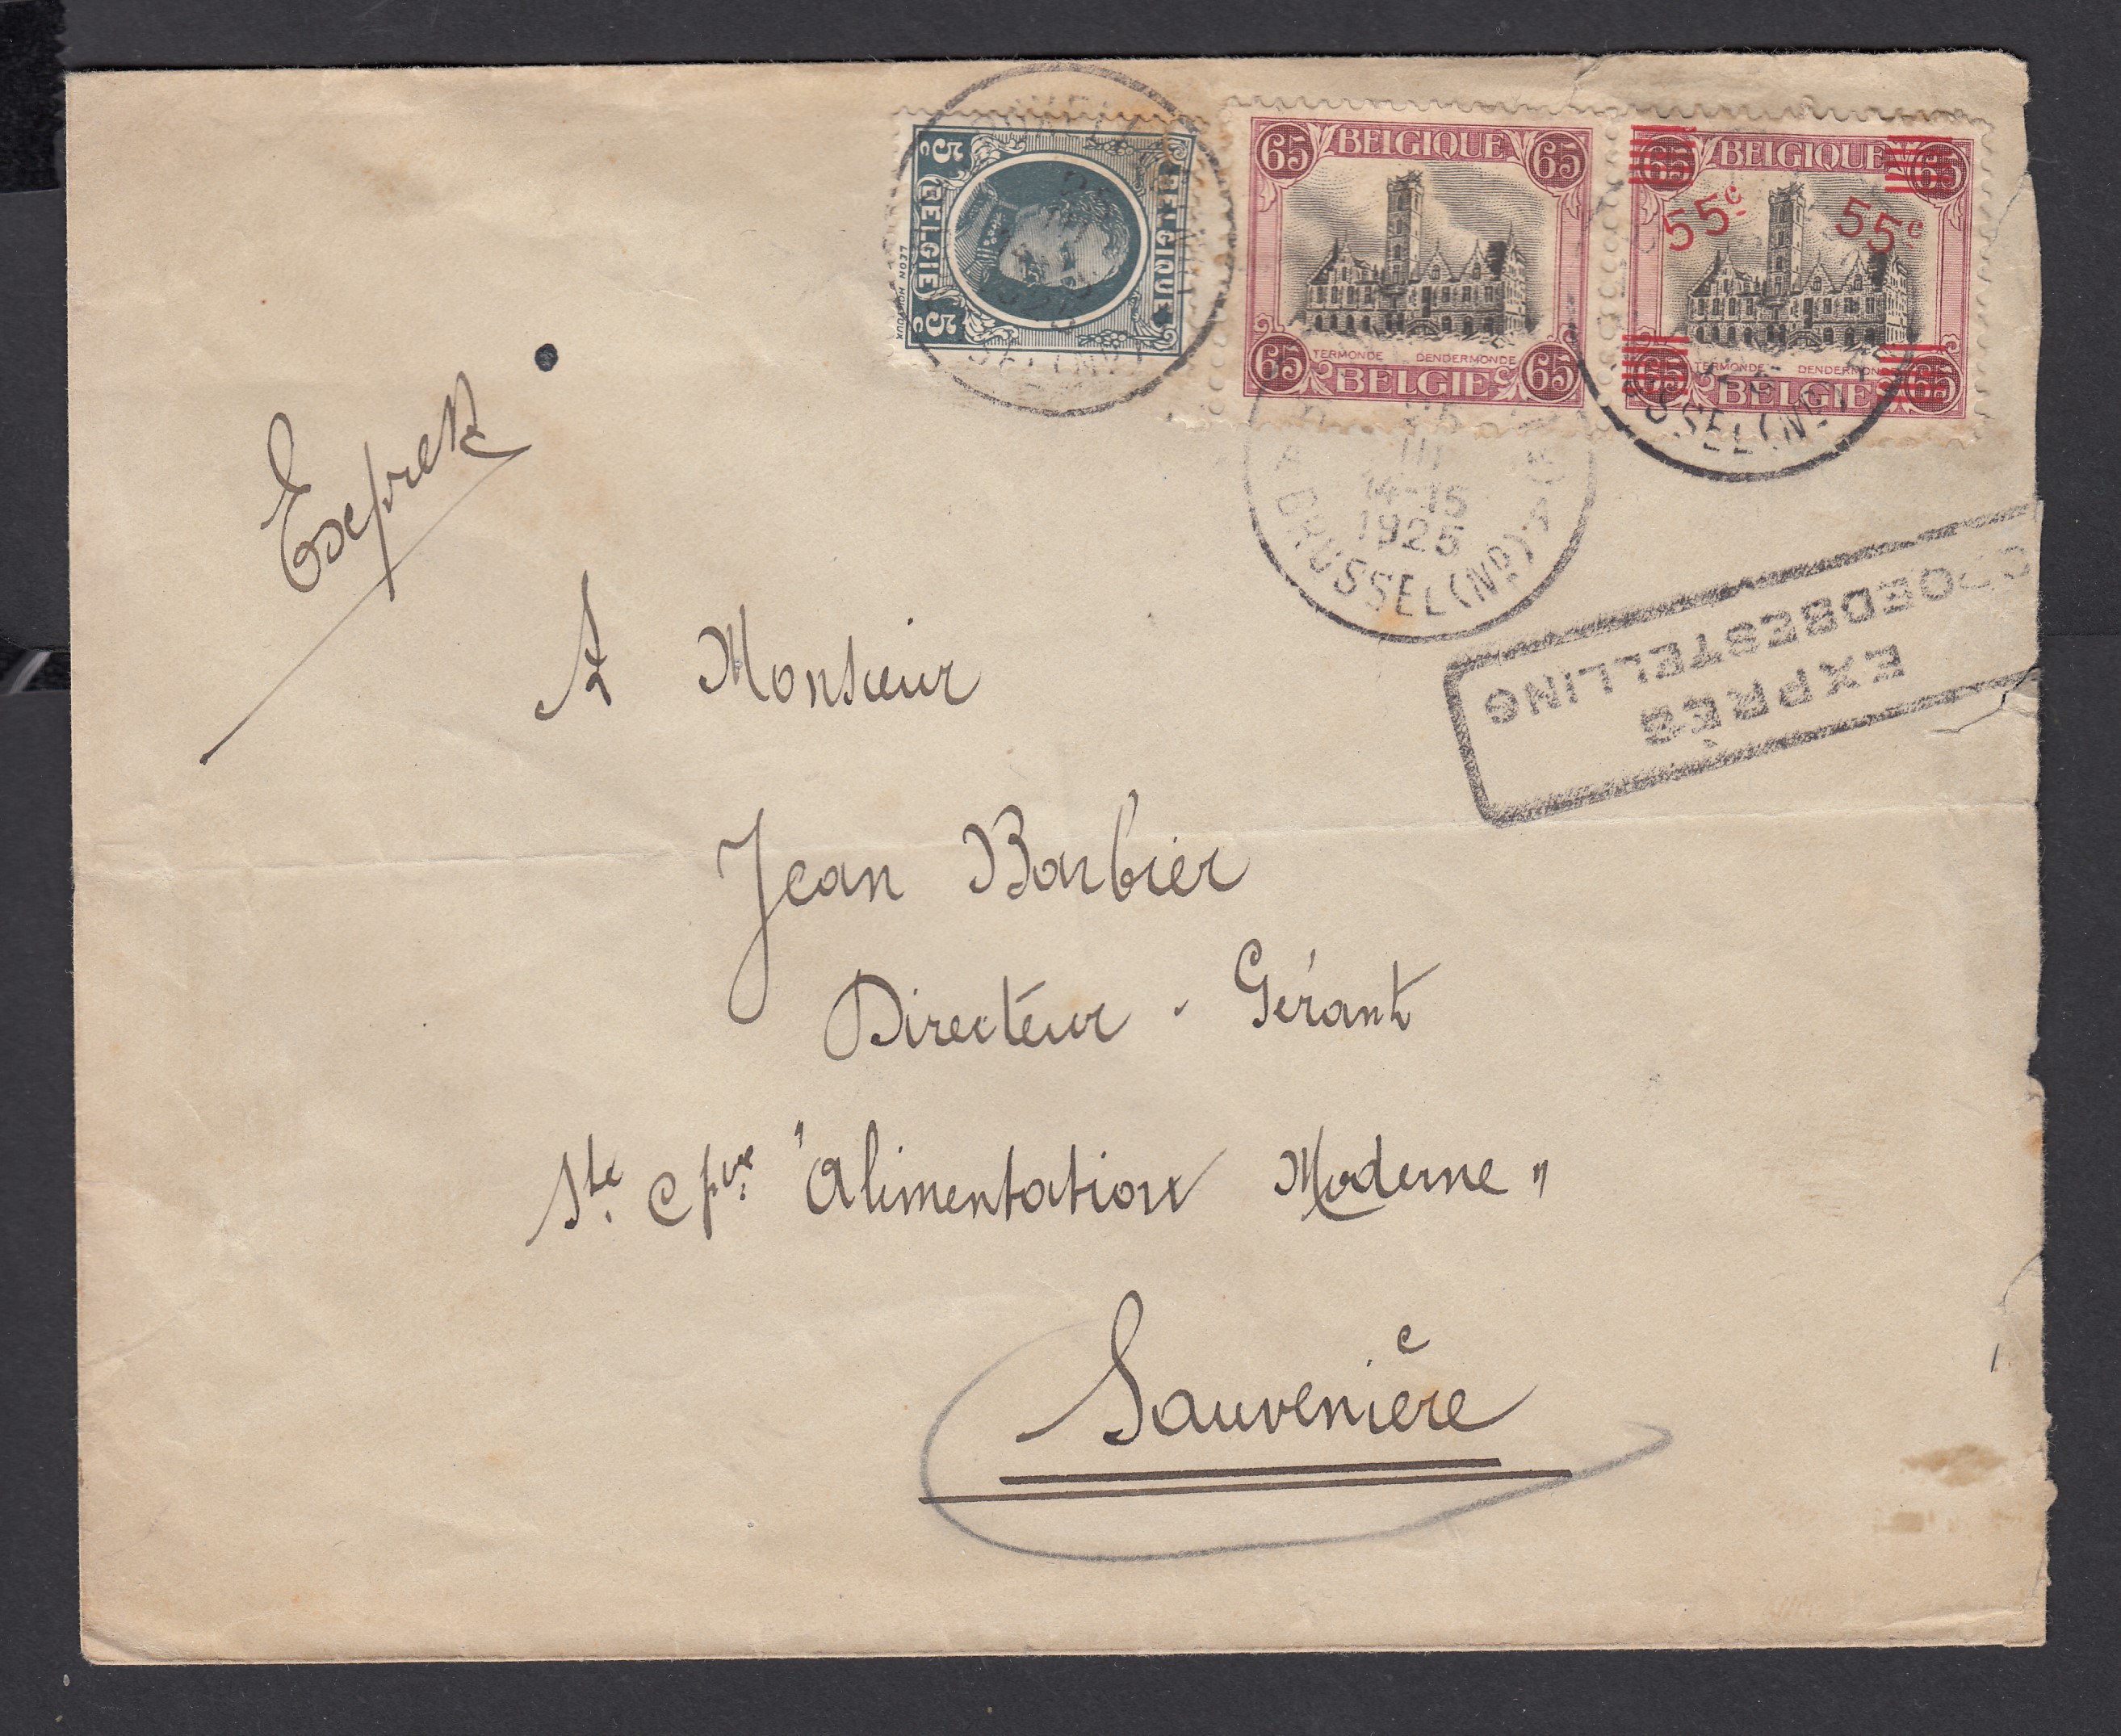 5c BELGIQUE 5c
BELGIE
65 BELGIQUE 65
65 TERMONDE DENDERMONDE 65
BELGIE
65 BELGIQUE 65
55c 55c
65 TERMONDE DENDERMONDE 65
BELGIE
III
14-15
1925
A BRUSSEL (Nd) A
SSEL (Nd)
EXPRÈS
SPOEDBESTELLING
Exprès
A Monsieur
Jean Barbier
Directeur - Gérant
Sté. Cpve. "Alimentation Moderne"
Sauvenière